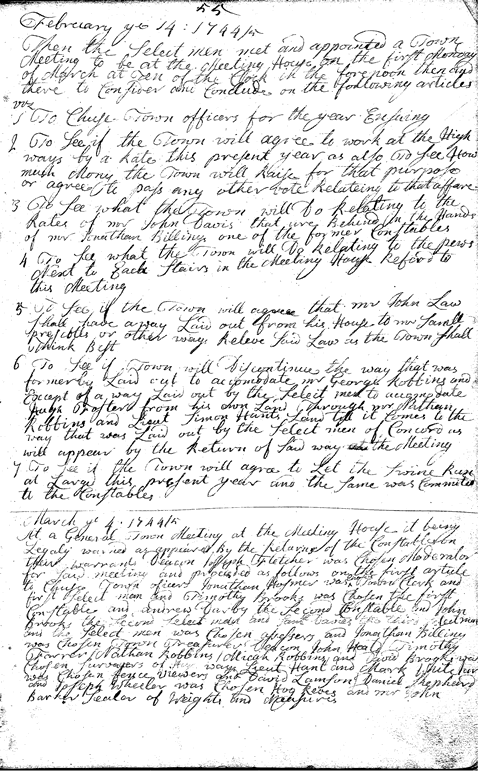 55
February ye 14: 1744/5
Then the Select men met and appointed a Town
Meeting to be at the Meeting House on the first Monday
of March at Ten of the Clock in the forenoon then and
there to Consider and Conclude on the following articles
viz
1 To Chuse Town officers for the year Ensuing
2 To See if the Town will agree to work at the High
ways by a Rate this present year as also To See How
much Mony the Town will Raise for that purpose
or agree to pass any other vote Relateing to that affare
3 To See what the Town will Do Relating to the
Rates of mr John Davis that are Behind In the Hands
of mr Jonathan Billing one of the former Constables
4 To See what the Town will Do Relating to the pews
Next to Each Stairs in the Meeting House Refer'd to
this Meeting
5 To See if the Town will agree that mr John Law
Shall have a way Laid out from his House to mr
or other ways Releve Said Law as the Town Shall
Think Best
6 To See if Town will Discontinue the way that was
formerly Laid out to accomodate mr George Robbins and
Except of a way Laid out by the Select men to accomodate
from his own Land through mr Nathan
Robbins and Lieut Simon Hunts Land till it Comes to the
way that was Laid out by the Select men of Concord as
will appear by the Return of Said way the Meeting
7 To See if the Town will agree to Let the Swine Run
at Large this present year and the Same was Committed
to the Constables
March ye 4. 1744/5
At a General Town Meeting at the Meeting House it being
Legaly warned as appeared By the Returns of the Constables on
their warrants Deacon Joseph Fletcher was Chosen Moderator
for Said meeting and proceeded as follows on the first article
to Chuse Town officers Jonathan Hosmer was Chosen Clerk and
first Select man and Timothy Brooks was Chosen the first
Constable and andrew Darby the Second Constable and John
Brooks the Second Select man and Select man
and the Select men was Chosen assessors and Jonathan Billing
was Chosen Town Treasurer Deacon John Heald Timothy
Nathan Robbins Micah Robbins and David Brooks was
Chosen Survayers of High ways Lieut Hunt and Mark White Junr
was Chosen fence viewers and David Lamson Daniel Shepherd
and Joseph Wheeler was Chosen Hog Reves and mr John
Barker Sealer of Weights and Measures